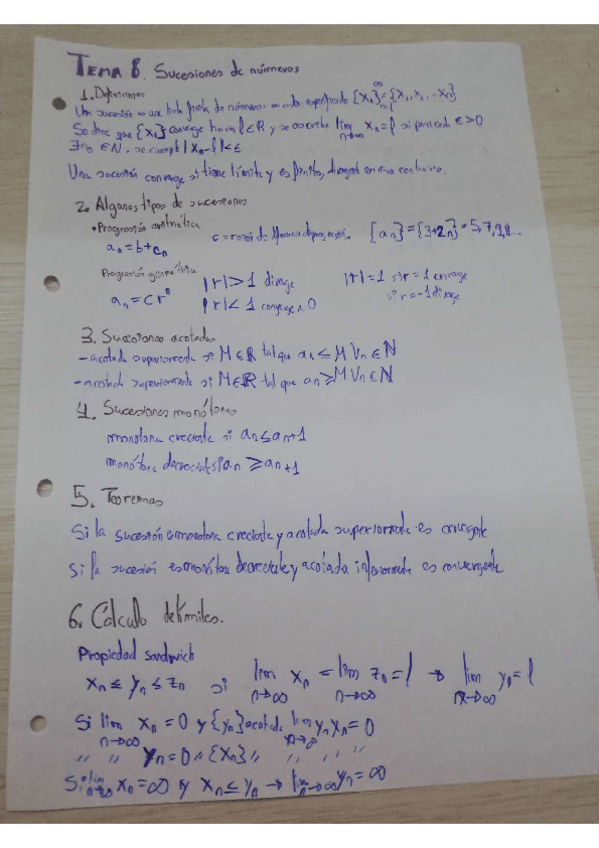 TEMA 8. Sucesiones de números
1. Definiciones
Una sucesión es una lista de números en orden especificado {Xₙ}ₙ₌₁^∞ = {X₁, X₂, ... Xₙ}
Se dice que {Xₙ} converge hacia l ∈ R y se escribe lim n→∞ Xₙ = l si para cada ϵ > 0
∃ n₀ ∈ N, se cumple | Xₙ - l | < ϵ
Una sucesión converge si tiene límite y es finito, divergente en caso contrario.
2. Algunos tipos de sucesiones
• Progresión aritmética
aₙ = b + cₙ c = razón de diferencia de progresión. {aₙ} = {3+2ₙ} = 5, 7, 9, 11...
Progresión geométrica |r| > 1 diverge |r| = 1 si r = 1 converge
aₙ = c rⁿ |r| < 1 converge a 0 si r = -1 diverge
3. Sucesiones acotadas
- acotada superiormente si M ∈ R tal que aₙ ≤ M ∀ₙ ∈ N
- acotada superiormente si M ∈ R tal que aₙ ≥ M ∀ₙ ∈ N
4. Sucesiones monótonas
monótona creciente si aₙ ≤ aₙ+1
monótona decreciente si aₙ ≥ aₙ+1
5. Teoremas
Si la sucesión es monótona creciente y acotada superiormente es convergente
Si la sucesión es monótona decreciente y acotada inferiormente es convergente
6. Cálculo de límites.
Propiedad sandwich
Xₙ ≤ Yₙ ≤ Zₙ si lim n→∞ Xₙ = lim n→∞ Zₙ = l → lim n→∞ Yₙ = l
Si lim n→∞ Xₙ = 0 y {Yₙ} acotada lim n→∞ YₙXₙ = 0
" " Yₙ = 0 " {Xₙ} " " " "
Si lim n→∞ Xₙ = ∞ y Xₙ ≤ Yₙ → lim n→∞ Yₙ = ∞